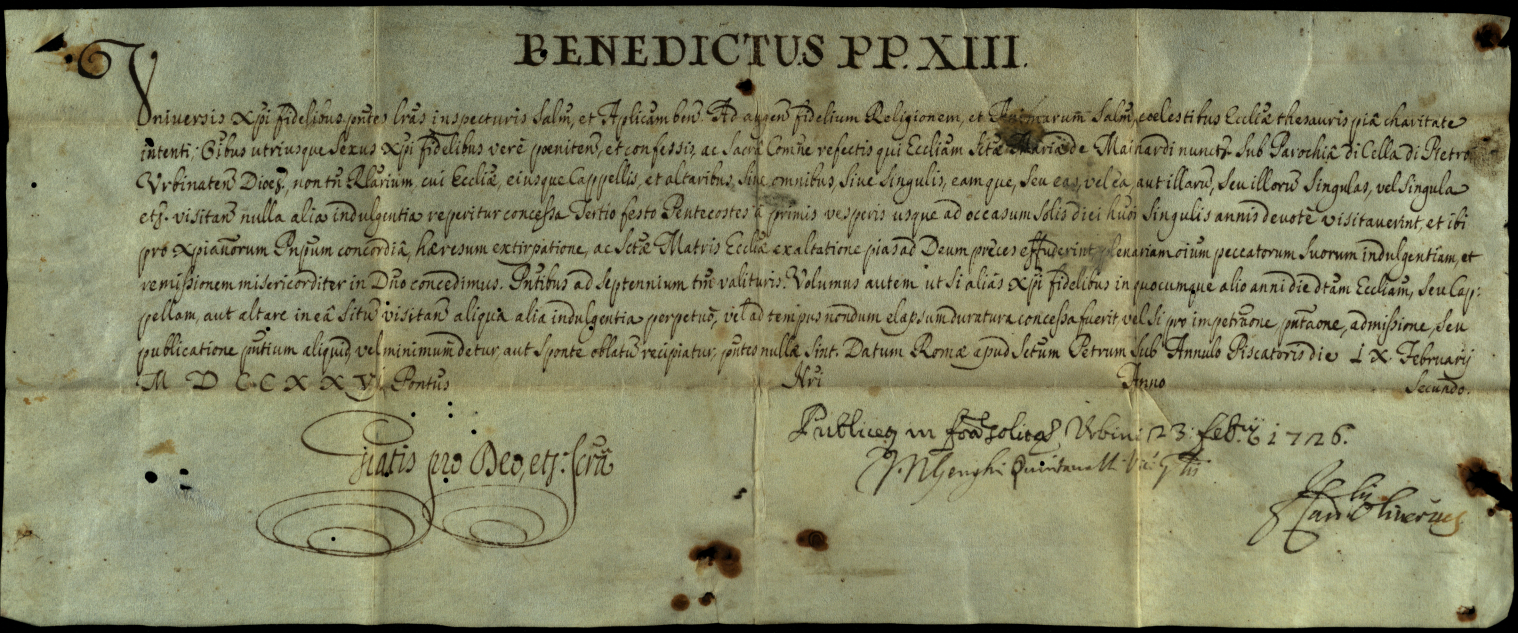 BENEDICTUS PP. XIII.
Universis Xpi fidelibus pntes lras inspecturis Salm, et Aplicam bens. Ad augens fidelium Religionem, et Animarum Salm, coelestibus Eccliae thesauris piâ charitate
intenti, Oibus utriusque Sexus Xpi fidelibus verè poenitens, et confessis, ac Sacrâ Comne refectis qui Eccliam Stae Mariae de Mainardi nuncts Sub Parochiâ di Cella di Pietro
Urbinatens Dioec. non tn Rlarium, cui Eccliae, eiusque Cappellis, et altaribus, Sive omnibus, Sive Singulis, eamque, Seu eas, vel ea, aut illarum, Seu illorum Singulas, vel Singula
etz. visitans nulla alia indulgentia reperitur concessa Tertio festo Pentecostes à primis vesperis usque ad occasum solis diei huōi Singulis annis devotè visitaverint, et ibi
pro Xpianorum Pnpum concordiâ, haeresum extirpatione, ac Sctae Matris Eccliae exaltatione pias ad Deum preces effuderint, plenariam oium peccatorum Suorum indulgentiam, et
remissionem misericorditer in Dno concedimus. Pntibus ad Septennium tm valituris. Volumus autem ut Si aliàs Xpi fidelibus in quocumque alio anni die dtam Eccliam, Seu Cap:
pellam, aut altare in eâ Situm visitans aliqua alia indulgentia perpetuò, vel ad tempus nondum elapsum duratura concessa fuerit vel Si pro impetraone, pntaone, admissione, Seu
publicatione pntium aliquid vel minimum detur, aut Sponte oblatum recipiatur, pntes nullae Sint. Datum Romae apud Sctum Petrum Sub Annulo Piscatoris die IX. Februarij
M D C C X X VI. Pontus Nri Anno Secundo.
Gratis pro Deo, etz: Scra
Publicetz in for solitas, Urbini 23 febrij 1726.